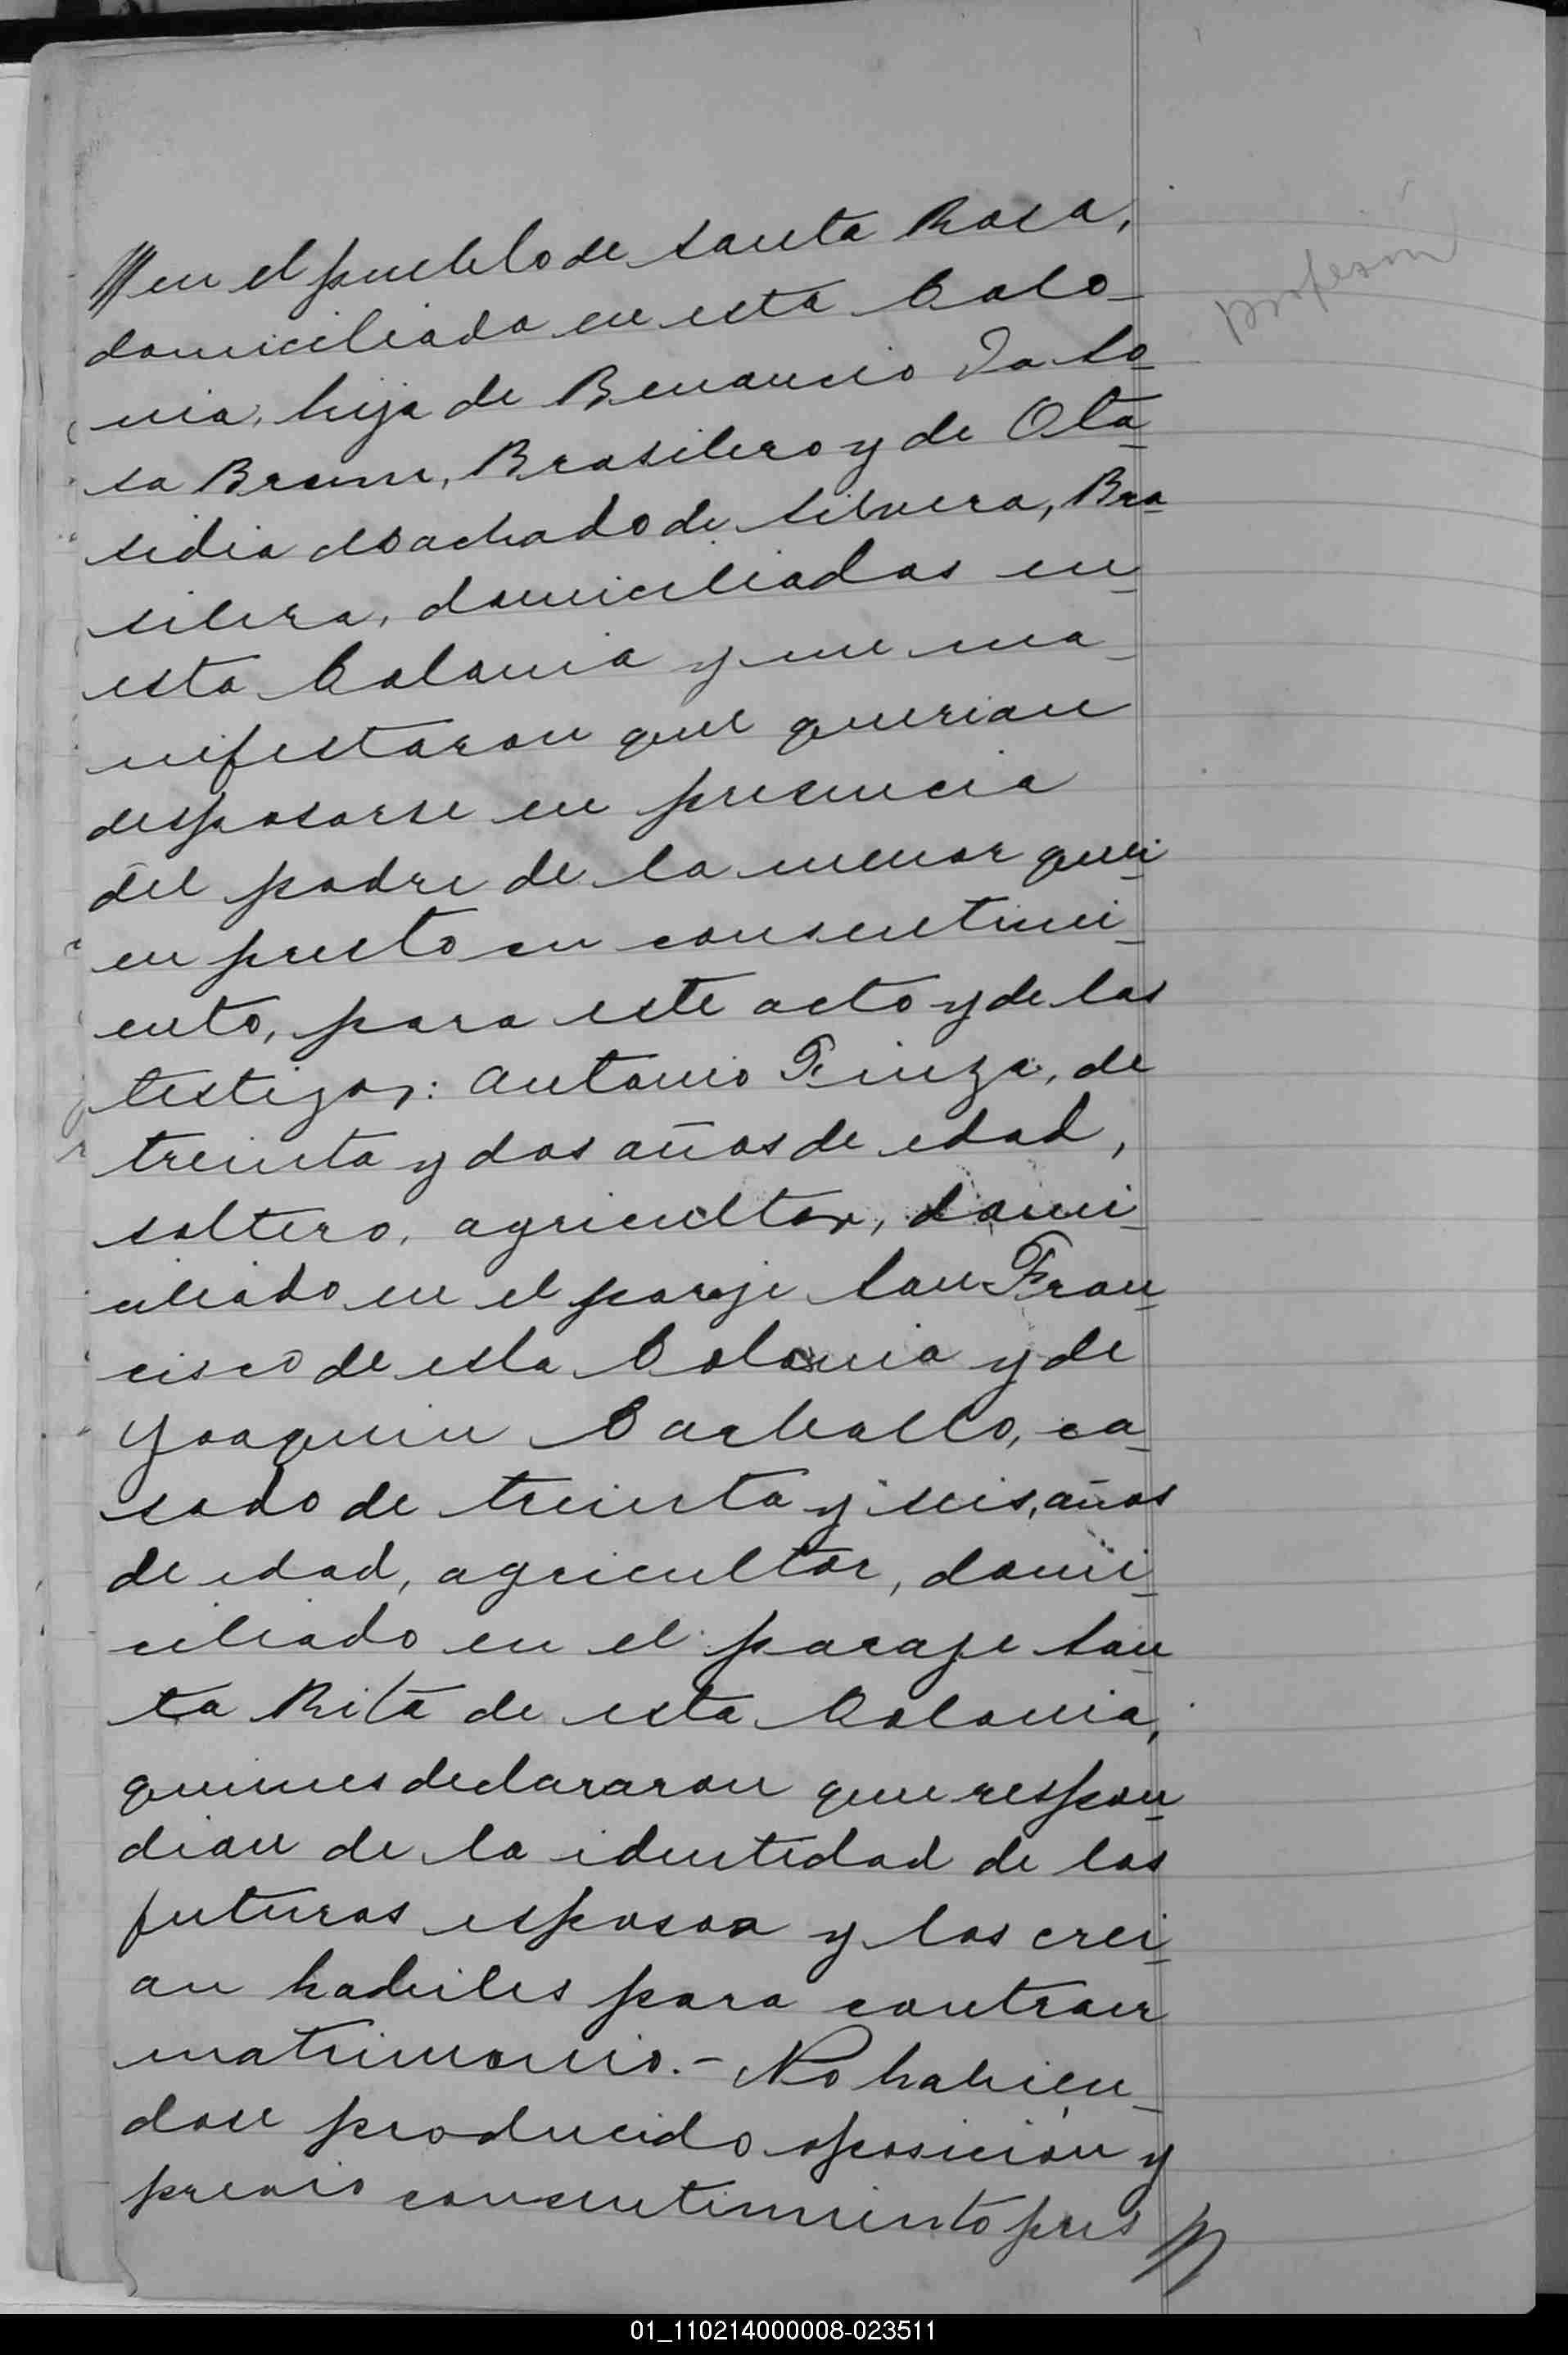 en el pueblo de Santa Rosa,
profesion
domiciliada en esta Colo-
nia, hija de Benancio Da So-
sa Brum, Brasilero y de Ota-
sidia Machado de Silvera, Bra-
silera, domiciliados en
esta Colonia y me ma-
nifestaron que querian
desposarse en presencia
del padre de la menor qui-
en presto su consentimi-
ento, para este acto y de los
testigos: Antonio Finza, de
treinta y dos años de edad,
soltero, agricultor, domi-
ciliado en el paraje San Fran-
cisco de esta Colonia y de
Joaquin Carballo, ca-
sado de treinta y seis, años
de edad, agricultor, domi-
ciliado en el paraje San-
ta Rita de esta Colonia,
quienes declararon que respon-
dian de la identidad de los
futuros esposos y los crei-
an habiles para contraer
matrimonio.- No habien-
dose producido oposición y
previo consentimiento pres
01_110214000008-023511